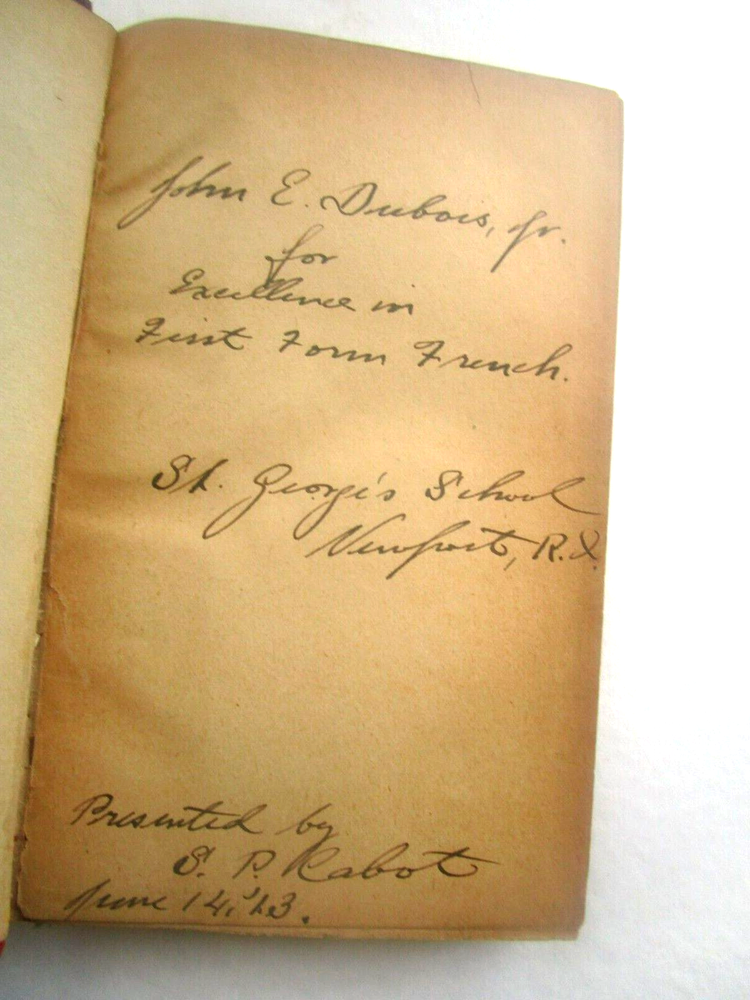 John E. Dubois, Jr.
for
Excellence in
First Form French.
St. George's School
Newport, R.I.
Presented by
S. P. Cabot
June 14, '13.